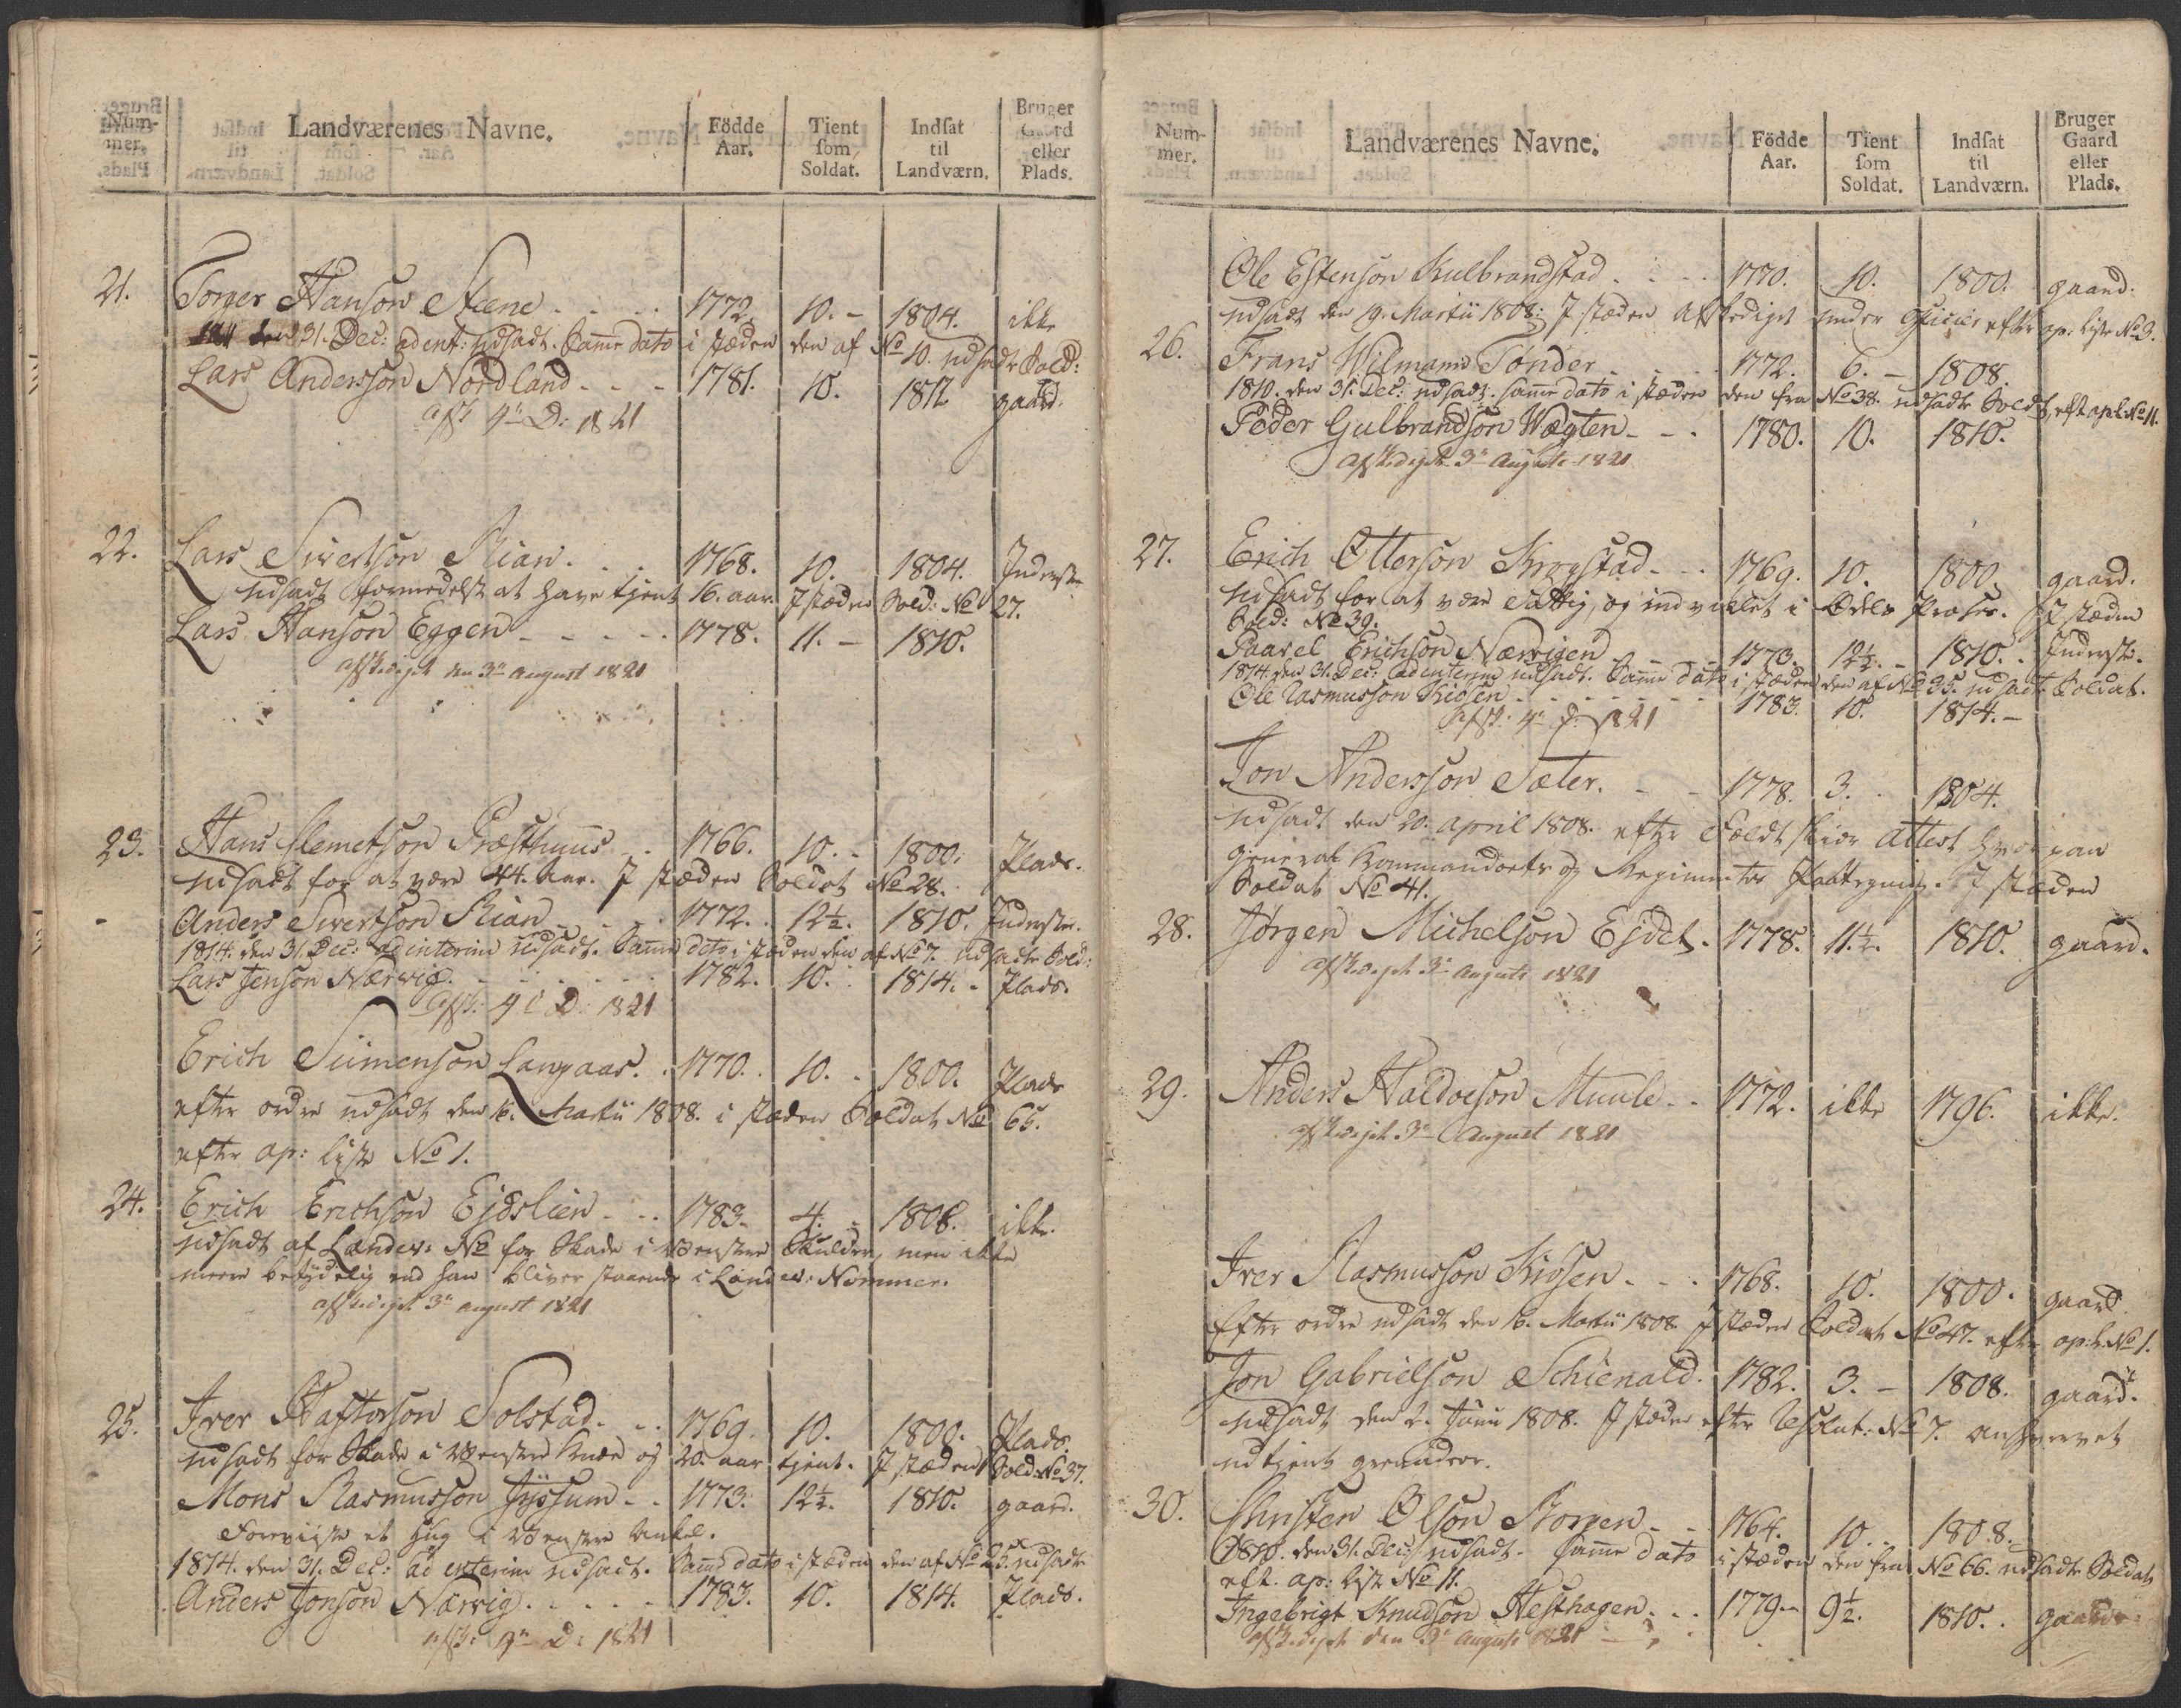 Num-
mer.
Landværenes Navne.
Födde
Aar.
Tient
som
Soldat.
Indsat
til
Landværn.
Bruger
Gaard
eller
Plads.
21. Torger Hanson Steene 1772. 10. - 1804. ikke
den 31. Dec: ad ent: udsadt. Samme dato i stæden den af No 10. udsadte Sold:
Lars Andersson Nordland 1781. 10. 1812 gaard.
afsk 4n D: 1821
22. Lars Sivertson Rian 1768. 10. 1804. Inderste
udsadt formedelst at have tjent 16. aar. J stæden Sold: No 27.
Lars Hanson Eggen 1778. 11. - 1810.
afskediget den 3n August 1821
23. Hans Clemetson Præsthuus 1766. 10. - 1800. Plads.
udsadt for at være 44. Aar. J stæden Soldat No 28.
Anders Sivertson Rian 1772. 12½. 1810. Inderste.
1814. den 31. Dec: ad interim udsadt. Samme dato i stæden den af No 7. udsadte Sold:
Lars Jenson Nærvig 1782. 10. 1814. - Plads.
afsk: 4 D: 1821
Erich Siimenson Langaas. 1770. 10. - 1800. Plads
efter ordre udsadt den 16. Martii 1808. i stæden Soldat No 65.
efter ap: liste No 1.
24. Erich Erichson Ejdslien 1783. 4. - 1808. ikke.
udsadt af Landev: No for Skade i Venstre Skulder, men ikke
meere betydelig end han bliver staaende i Landev: Nommer.
afskediget 3n august 1821
25. Iver Haftorson Solstad. 1769. 10. 1800. Plads.
udsadt for Skade i Venstre Knæe og 20. aar tjent. J stæden Sold: No 37.
Mons Rasmusson Jyssum 1773. 12½. 1810. gaard.
Foreviiste et Hug i Venstre Ankel.
1814. den 31. Dec: ad interim udsadt. Samme dato i stæden den af No 25. udsadte
Anders Jonson Nærvig 1783. 10. 1814. Plads.
afsk: 4n D: 1821
Num-
mer.
Landværenes Navne.
Födde
Aar.
Tient
som
Soldat.
Indsat
til
Landværn.
Bruger
Gaard
eller
Plads.
Ole Estenson Kulbrandstad 1770. 10. 1800. gaard.
udsadt den 19. Martii 1808. J stæden Afskediget under Officier efter ap: liste No 3.
26. Frans Wilmann Tønder 1772. 6. - 1808.
1810. den 31. Dec: udsadt. samme dato i stæden den fra No 38. udsadte Sold, eft ap: l: No 11.
Peder Gulbrandson Wægten 1780. 10. 1810.
afskediget 3n Augusti 1821
27. Erich Otterson Krogstad 1769. 10. 1800. gaard.
udsadt for at være Fattig, og indviklet i Odels Proses. J stæden
Sold: No 39.
Paavel Erichson Nærvigen 1773. 12½. - 1810. Inderste.
1814. den 31. Dec: ad interim udsadt. Samme dato i stæden den af No 35. udsadte Soldat.
Ole Rasmusson Kiosen 1783. 10. 1814. -
afsk: 4n D: 1821
Jon Andersson Sæter. 1778. 3. 1804.
udsadt den 20. april 1808. efter Feldtskier Attest hvorpaa
General Kommandoets og Regimentets Paategning. J stæden
Soldat No 41.
28. Jørgen Michelson Ejdet. 1778. 11½. 1810. gaard.
afskediget 3n Augusti 1821
29. Anders Haldorson Muule 1772. ikke 1796. ikke.
afskediget 3n August 1821
Iver Rasmusson Kiosen 1768. 10. 1800. gaard
Efter ordre udsadt den 16. Martii 1808 J stæden Soldat No 47. efter ap: l: No 1.
Jon Gabrielson Schienald. 1782. 3. - 1808. gaard.
udsadt den 2. Junii 1808. J stæden efter Resolut: No 7. anhvervet
udtjent grenadeer.
30. Christen Olson Borgen 1764. 10. 1808.
1810. den 31. Dec: udsadt. samme dato i stæden den fra No 66. udsadte Soldat
eft. ap: liste No 11.
Ingebrigt Knudson Hesthagen 1779. 9½. 1810. gaard.
afskediget den 3n Augusti 1821